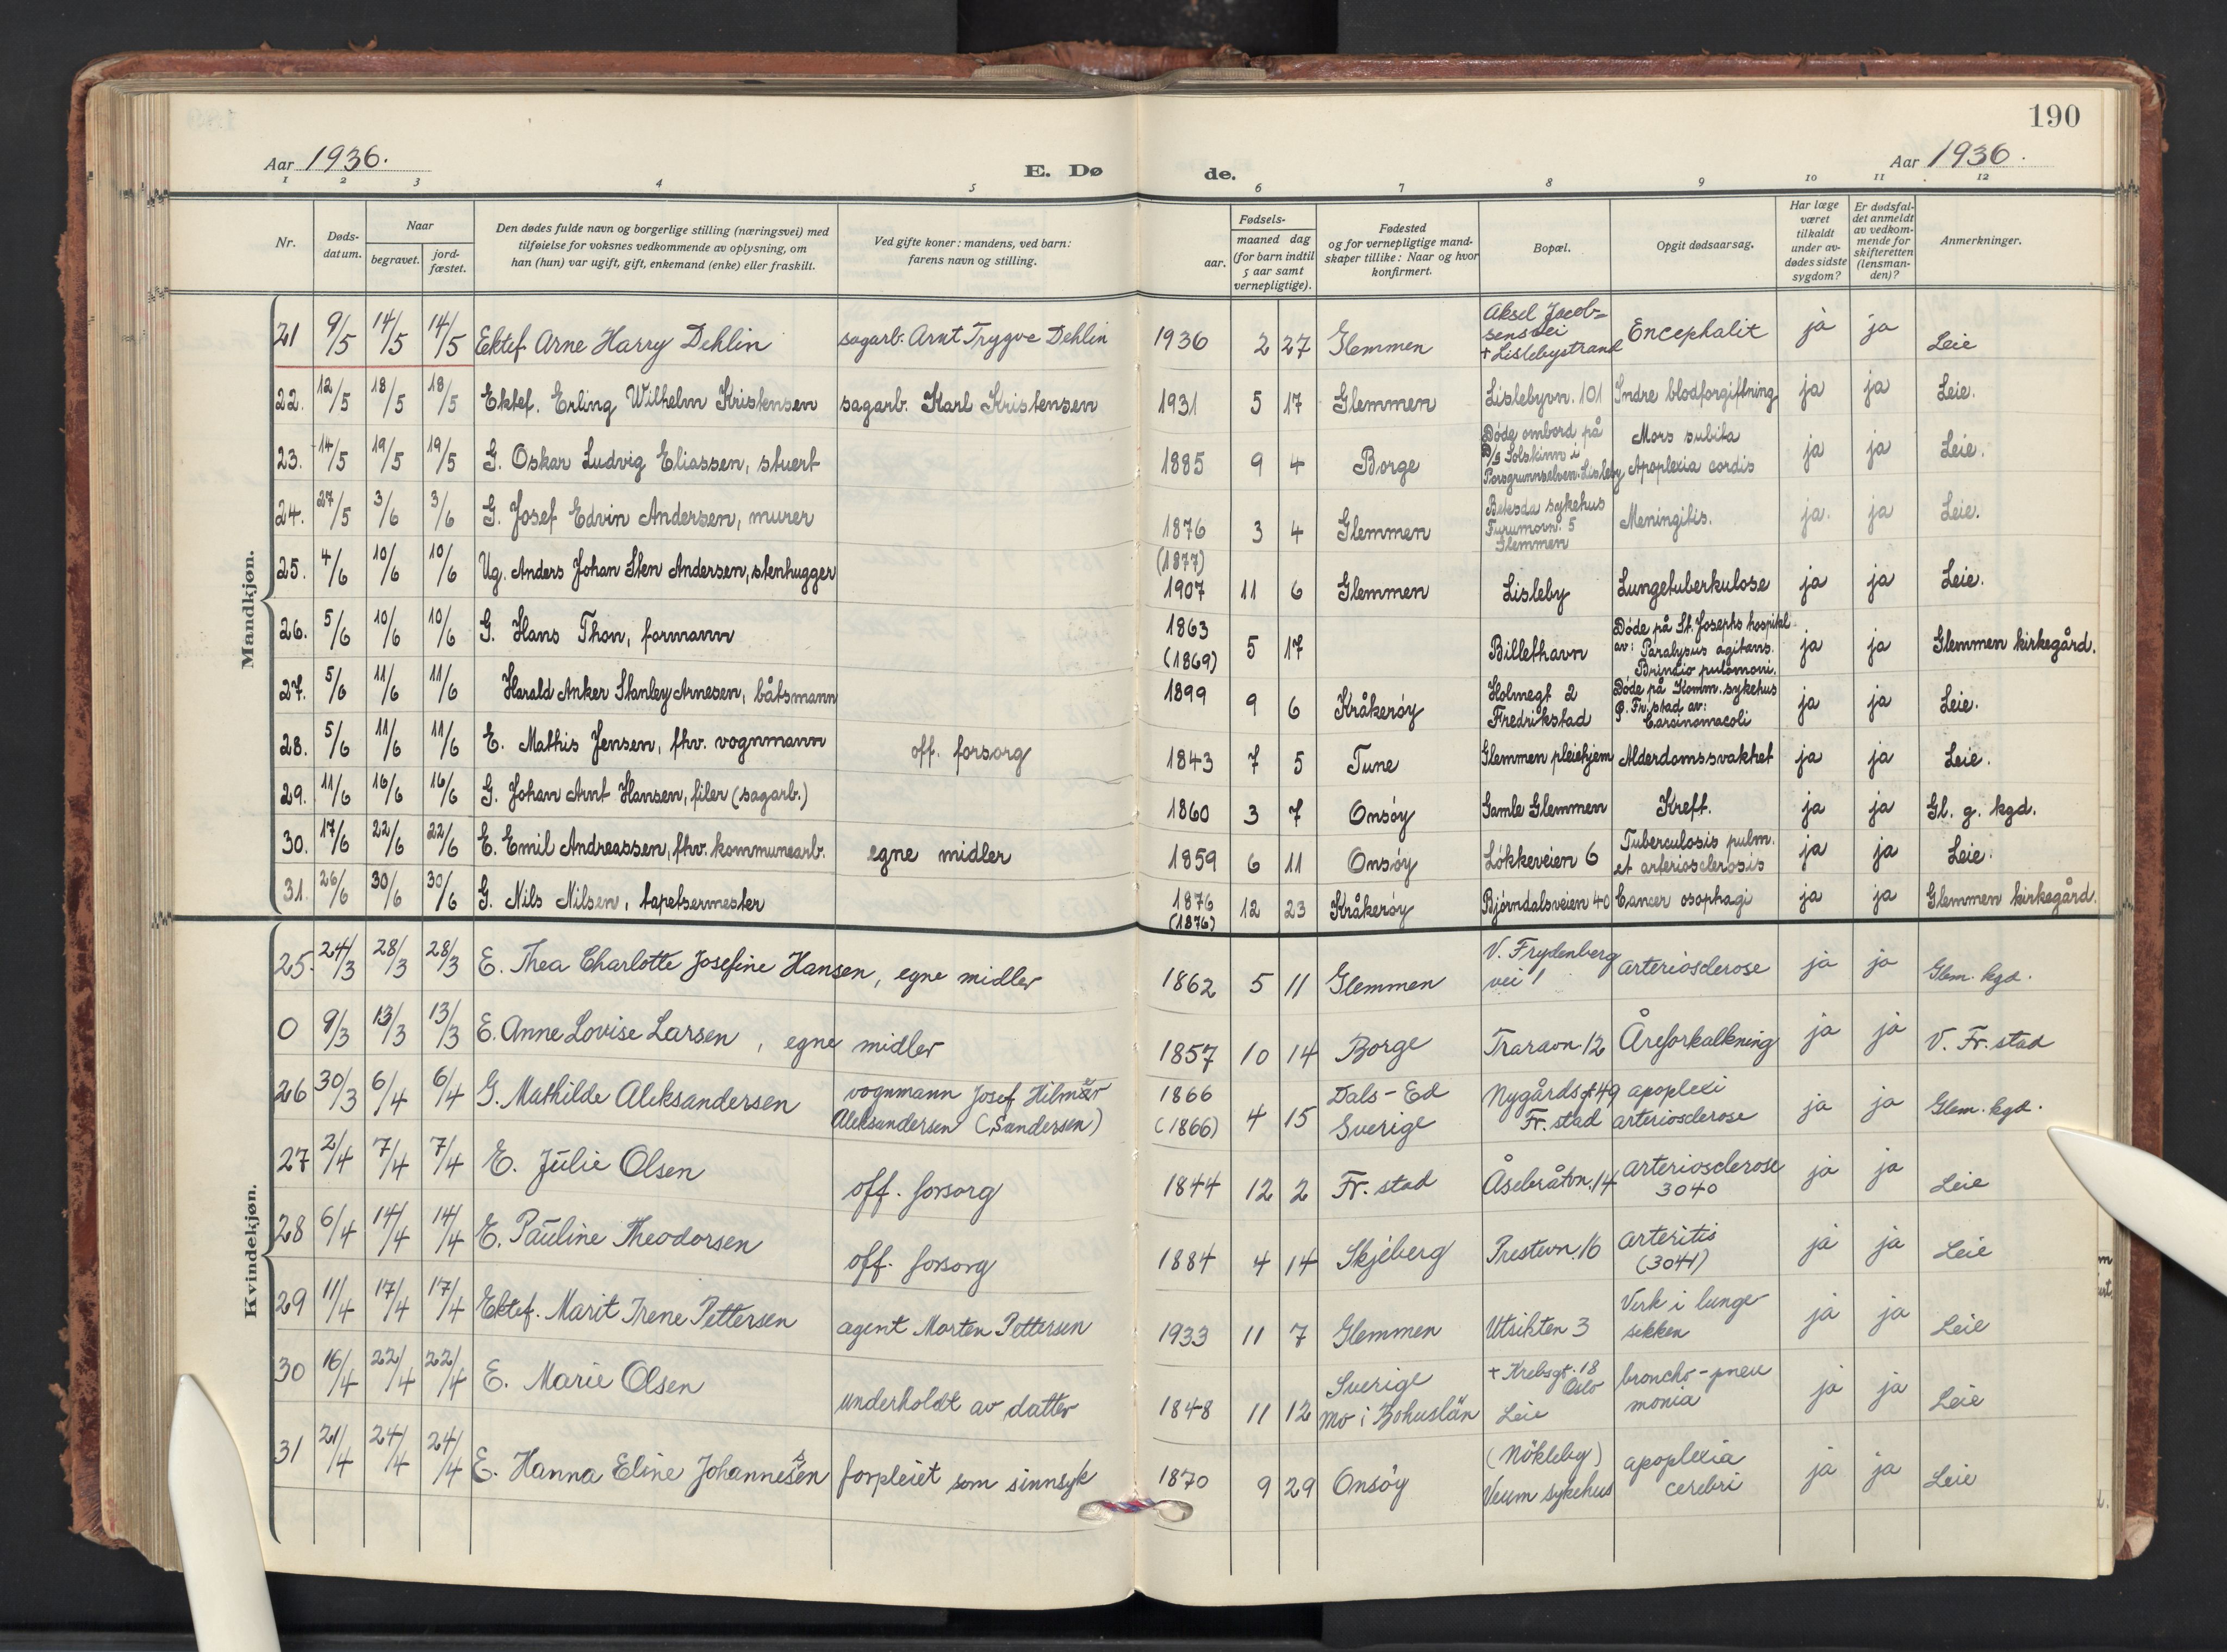 190
Aar 1936. E. Døde. Aar 1936.
1 2 3 4 5 6 7 8 9 10 11 12
Nr. | Dødsdatum. | Naar begravet. | jordfæstet. | Den dødes fulde navn og borgerlige stilling (næringsvei) med tilføielse for voksnes vedkommende av oplysning, om han (hun) var ugift, gift, enkemand (enke) eller fraskilt. | Ved gifte koner: mandens, ved barn: farens navn og stilling. | Fødsels- aar. | maaned dag (for barn indtil 5 aar samt vernepligtige). | Fødested og for vernepligtige mandskaper tillike: Naar og hvor konfirmert. | Bopæl. | Opgit dødsaarsag. | Har læge været tilkaldt under avdødes sidste sygdom? | Er dødsfaldet anmeldt av vedkommende for skifteretten (lensmanden)? | Anmerkninger.
Mandkjøn.
21 9/5 14/5 14/5 Ektef. Arne Harry Dehlin sagarb. Arnt Trygve Dehlin 1936 2 27 Glemmen Aksel Jacobsensvei + Lislebystrand Encephalit ja ja Leie
22. 12/5 18/5 18/5 Ektef. Erling Wilhelm Kristensen sagarb. Karl Kristensen 1931 5 17 Glemmen Lislebyvn. 101 Indre blodforgiftning ja ja Leie.
23. 14/5 19/5 19/5 G. Oskar Ludvig Eliassen, stuert 1885 9 4 Borge Døde ombord på D/S Solskinn i Porsgrunnselven. Lisleby Mors subita Apoplexia cordis ja ja Leie.
24. 27/5 3/6 3/6 G. Josef Edvin Andersen, murer 1876 (1877) 3 4 Glemmen Betesda sykehus Furumovn. 5 Glemmen Meningitis. ja. ja Leie.
25. 4/6 10/6 10/6 Ug. Anders Johan Sten Andersen, stenhugger 1907 11 6 Glemmen Lisleby Lungetuberkulose ja ja Leie.
26. 5/6 10/6 10/6 G. Hans Thon, formann 1863 (1869) 5 17 Billethavn Døde på St. Josephs hospital av: Paralysus agitans. ja ja Glemmen kirkegård.
27. 5/6 11/6 11/6 Harald Anker Stanley Arnesen, båtsmann 1899 9 6 Kråkerøy Holmegt 2 Fredrikstad Døde på Komm. sykehus Fr.stad av: Carcinomacoli ja ja Leie.
28. 5/6 11/6 11/6 E. Mathis Jensen, fhv. vognmann off. forsorg 1843 7 5 Tune Glemmen pleiehjem Alderdomssvakhet ja ja Leie.
29. 11/6 16/6 16/6 G. Johan Arnt Hansen, filer (sagarb.) 1860 3 7 Onsøy Gamle Glemmen Kreft. ja ja Gl. g. kgd.
30. 17/6 22/6 22/6 E. Emil Andreassen, fhv. kommunearb. egne midler 1859 6 11 Onsøy Løkkeveien 6 Tuberculosis pulm. et arteriosclerosis ja ja Leie.
31. 26/6 30/6 30/6 G. Nils Nilsen, tapetsermester 1876 (1876) 12 23 Kråkerøy Bjørndalsveien 40 Cancer osophagi ja ja Glemmen kirkegård.
Kvindekjøn.
25. 24/3 28/3 28/3 E. Thea Charlotte Josefine Hansen, egne midler 1862 5 11 Glemmen V. Frydenberg vei 1 arteriosclerose ja ja Glem. kgd.
0 9/3 13/3 13/3 E. Anne Lovise Larsen, egne midler 1857 10 14 Borge Traravn. 12 Åreforkalkning ja ja V. Fr. stad
26 30/3 6/4 6/4 G. Mathilde Aleksandersen vognmann Josef Hilmar Aleksandersen (Sandersen) 1866 (1866) 4 15 Dals-Ed Sverige Nygårdsgt 49 Fr. stad apoplexi arteriosclerose ja ja Glem. kgd.
27 2/4 7/4 7/4 E. Julie Olsen off. forsorg 1844 12 2 Fr. stad Åsebråtvn. 14 arteriosclerose 3040 ja ja Leie
28 6/4 14/4 14/4 E. Pauline Theodorsen off. forsorg 1884 4 14 Skjeberg Prestevn. 16 arteritis (3041) ja ja Leie
29 11/4 17/4 17/4 Ektef. Marit Irene Pettersen agent Morten Pettersen 1933 11 7 Glemmen Utsikten 3 Verk i lunge sekken ja ja Leie
30 16/4 22/4 22/4 E. Marie Olsen underholdt av datter 1848 11 12 Sverige Mo i Bohuslän + Krebsgt. 18 Oslo Leie broncho-pneumonia ja ja Leie
31 21/4 24/4 24/4 E. Hanna Eline Johannesen forpleiet som sinnsyk 1870 9 29 Onsøy (Nökleby) Veum sykehus apoplexia cerebri ja ja Leie